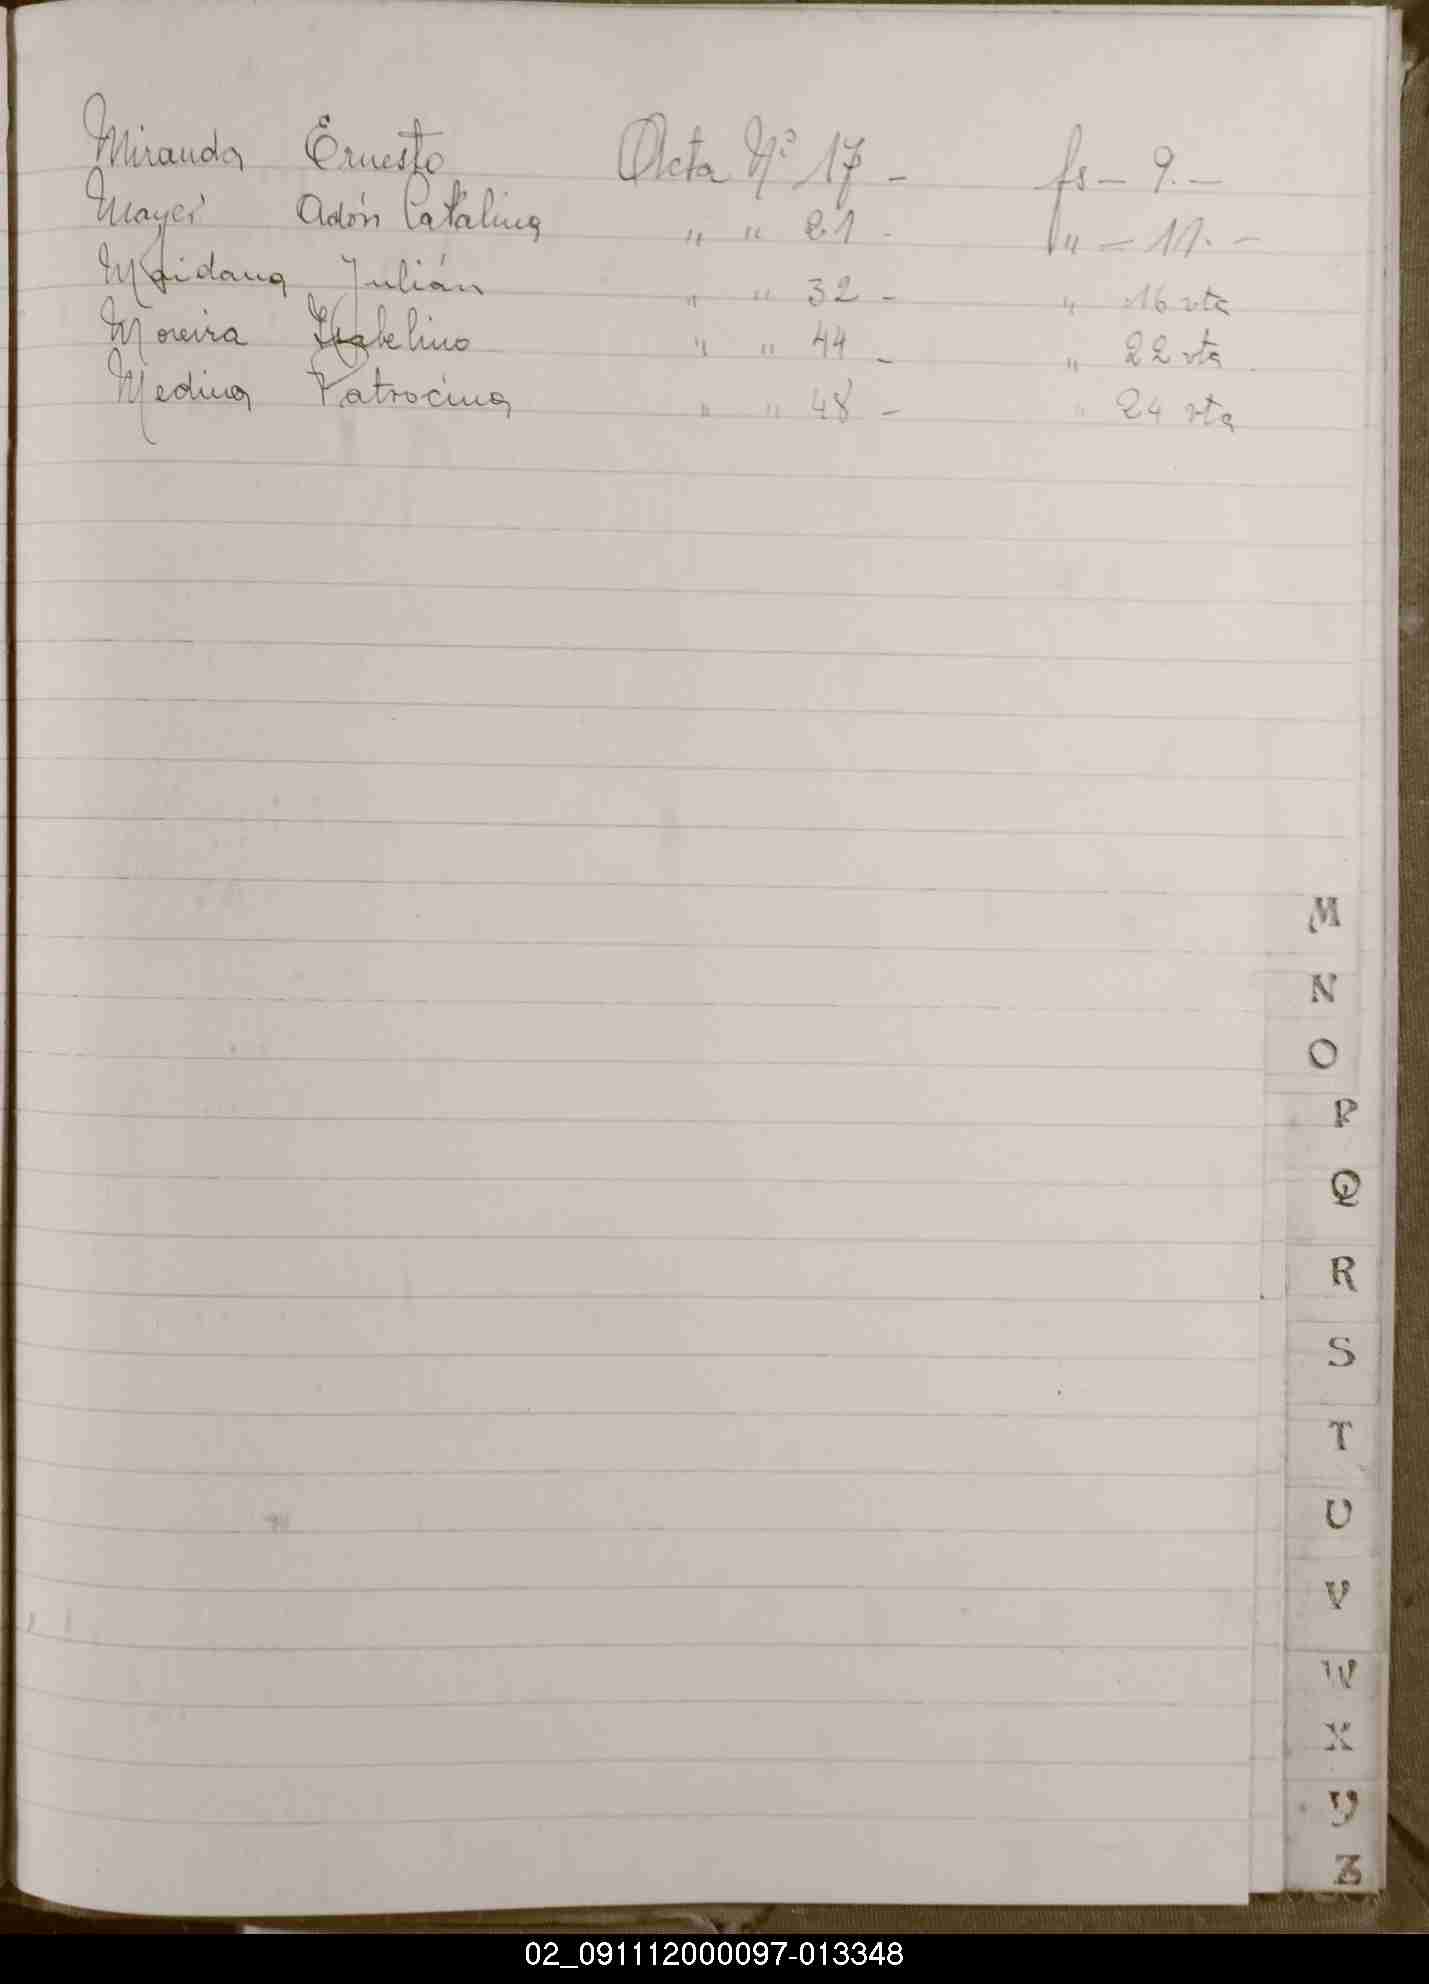 Miranda Ernesto Acta Nº 17 - fs - 9. -
Mayer Adón Catalina " " 21 - " - 11. -
Maidana Julián " " 32 - " 16 vta
Moreira " " 44 - " 22 vta
Medina Patrocina " " 48 - " 24 vta
M
N
O
P
Q
R
S
T
U
V
W
X
Y
Z
02_091112000097-013348